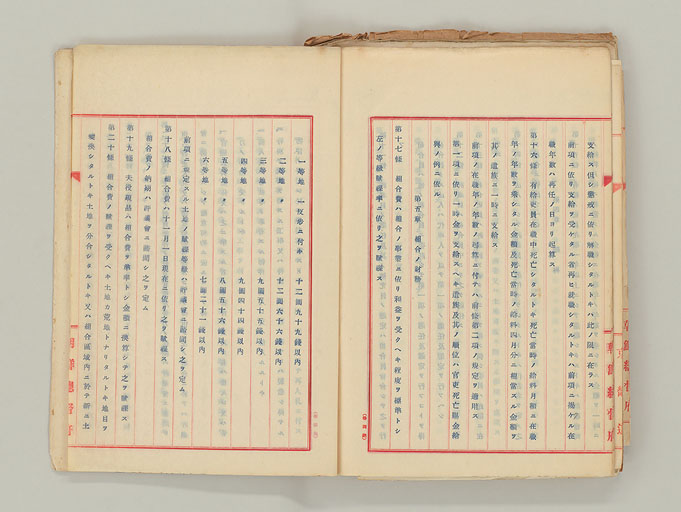 支給ス但シ懲戒ニ依リ解職シタルトキハ此ノ限ニ在ラス
前項ニ依リ支給ヲ受ケタル者再ヒ就職シタルトキハ前項ニ掲ケル在
職年数ハ再任ノ日ヨリ起算ス
第十六條 有給吏員在職中死亡シタルトキ死亡當時ノ給料月額ニ在職
年ノ年数ヲ乗シタル金額及死亡當時ノ給料四月分ニ相當スル金額ヲ
其ノ遺族ニ一時ニ支給ス
前項ノ在職年ノ年数ノ起算ニ付テハ前條第二項ノ規定ヲ適用ス
第一項ニ依リ一時金ヲ支給スヘキ遺族及其ノ順位ハ官吏死亡賜金給
與ノ例ニ依ル
第五章 組合ノ財務
第十七條 組合費ハ組合ノ事業ニ依リ利益ヲ受クヘキ程度ヲ標準トシ
左ノ等級賦課率ニ依リ之ヲ賦課ス
一等地 一反歩ニ付キ 十二圓九十九錢以內
二等地 〃 十二圓六十六錢以內
三等地 〃 九圓五十五錢以內
四等地 〃 九圓四十四錢以內
五等地 〃 八圓五十六錢以內
六等地 〃 七圓二十二錢以內
前項ニ規定スル土地ノ賦課等級ハ評議會ニ諮問シ之ヲ定ム
第十八條 組合費ハ十一月一日現在ニ依リ之ヲ賦課ス
組合費ノ納期ハ評議會ニ諮問シ之ヲ定ム
第十九條 夫役現品ハ組合費ヲ準率トシ金額ニ換算シ之ヲ賦課ス
第二十條 組合費ノ賦課ヲ受クヘキ土地カ荒地トナリタルトキ地目ヲ
變換シタルトキ土地ヲ分合シタルトキ又ハ組合區域內ニ於テ新ニ土
朝鮮總督府